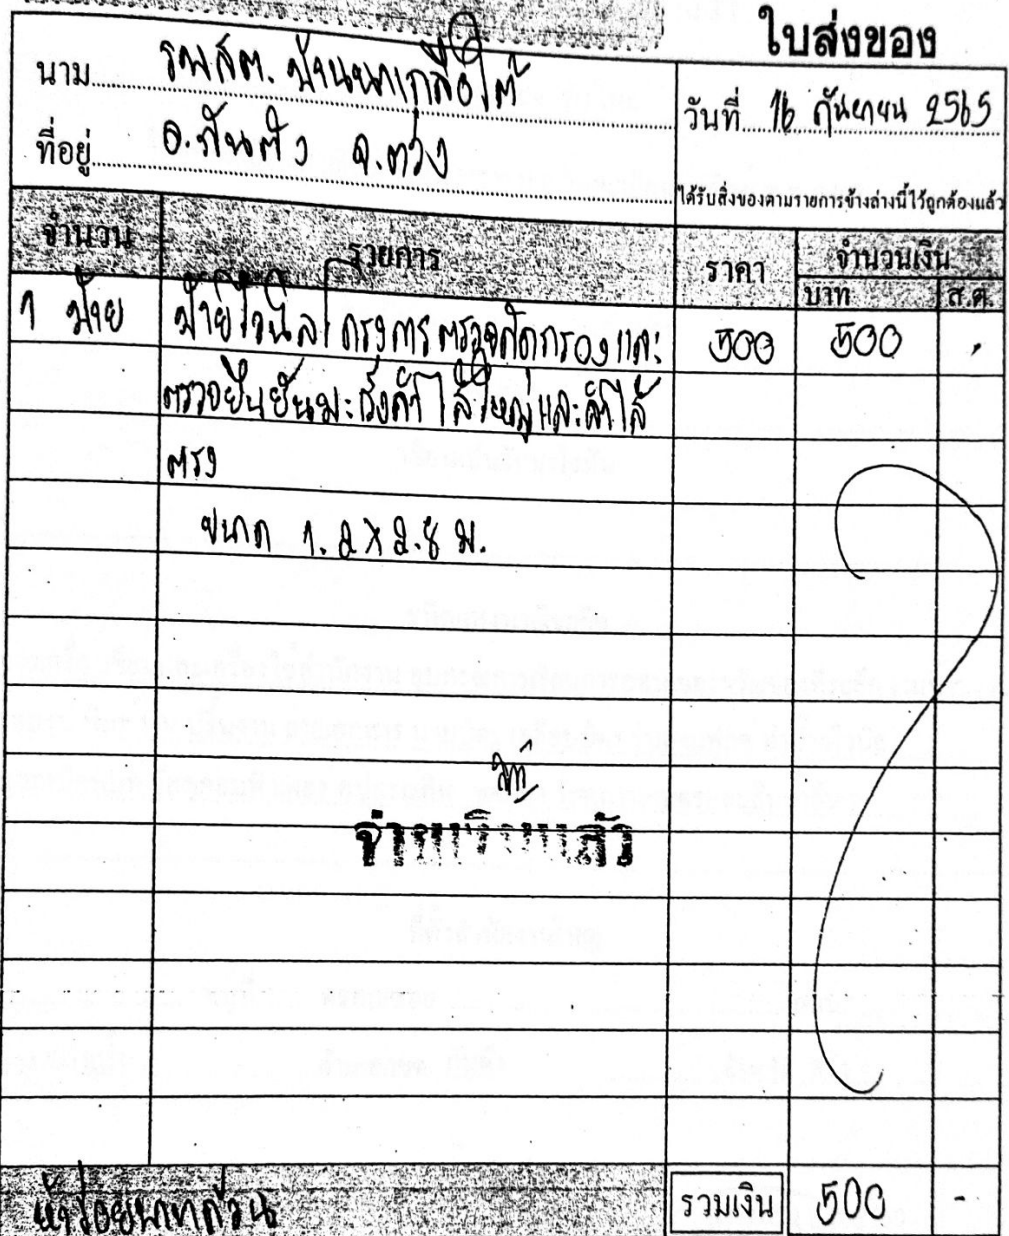 ใบส่งของ
นาม รพ.สต. บ้านนาเกลือใต้
วันที่ 16 กันยายน 2565
ที่อยู่ อ.กันตัง จ.ตรัง
ได้รับสิ่งของตามรายการข้างล่างนี้ไว้ถูกต้องแล้ว
จำนวน รายการ ราคา จำนวนเงิน
บาท ส.ต.
1 ป้าย ป้ายไวนิลโครงการตรวจคัดกรองและ 500 500 -
ตรวจยืนยันมะเร็งลำไส้ใหญ่และลำไส้
ตรง
ขนาด 1.2 X 2.8 ม.
จ่ายเงินแล้ว
ห้าร้อยบาทถ้วน รวมเงิน 500 -